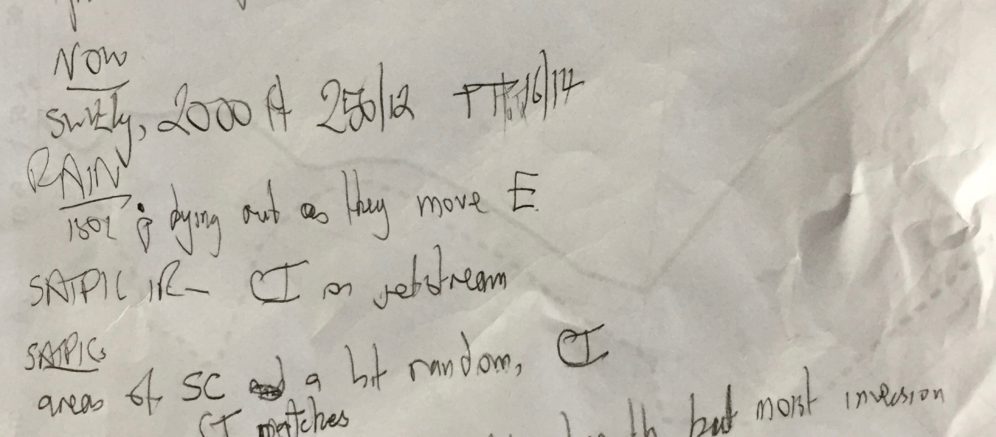 NOW
SWrly, 2000 ft 250/12 TT 16/14
RAIN
isol dying out as they move E.
SATPIC IR- CI on jetstream
SATPIC
areas of SC a bit random, CI
CI matches
but moist inversion